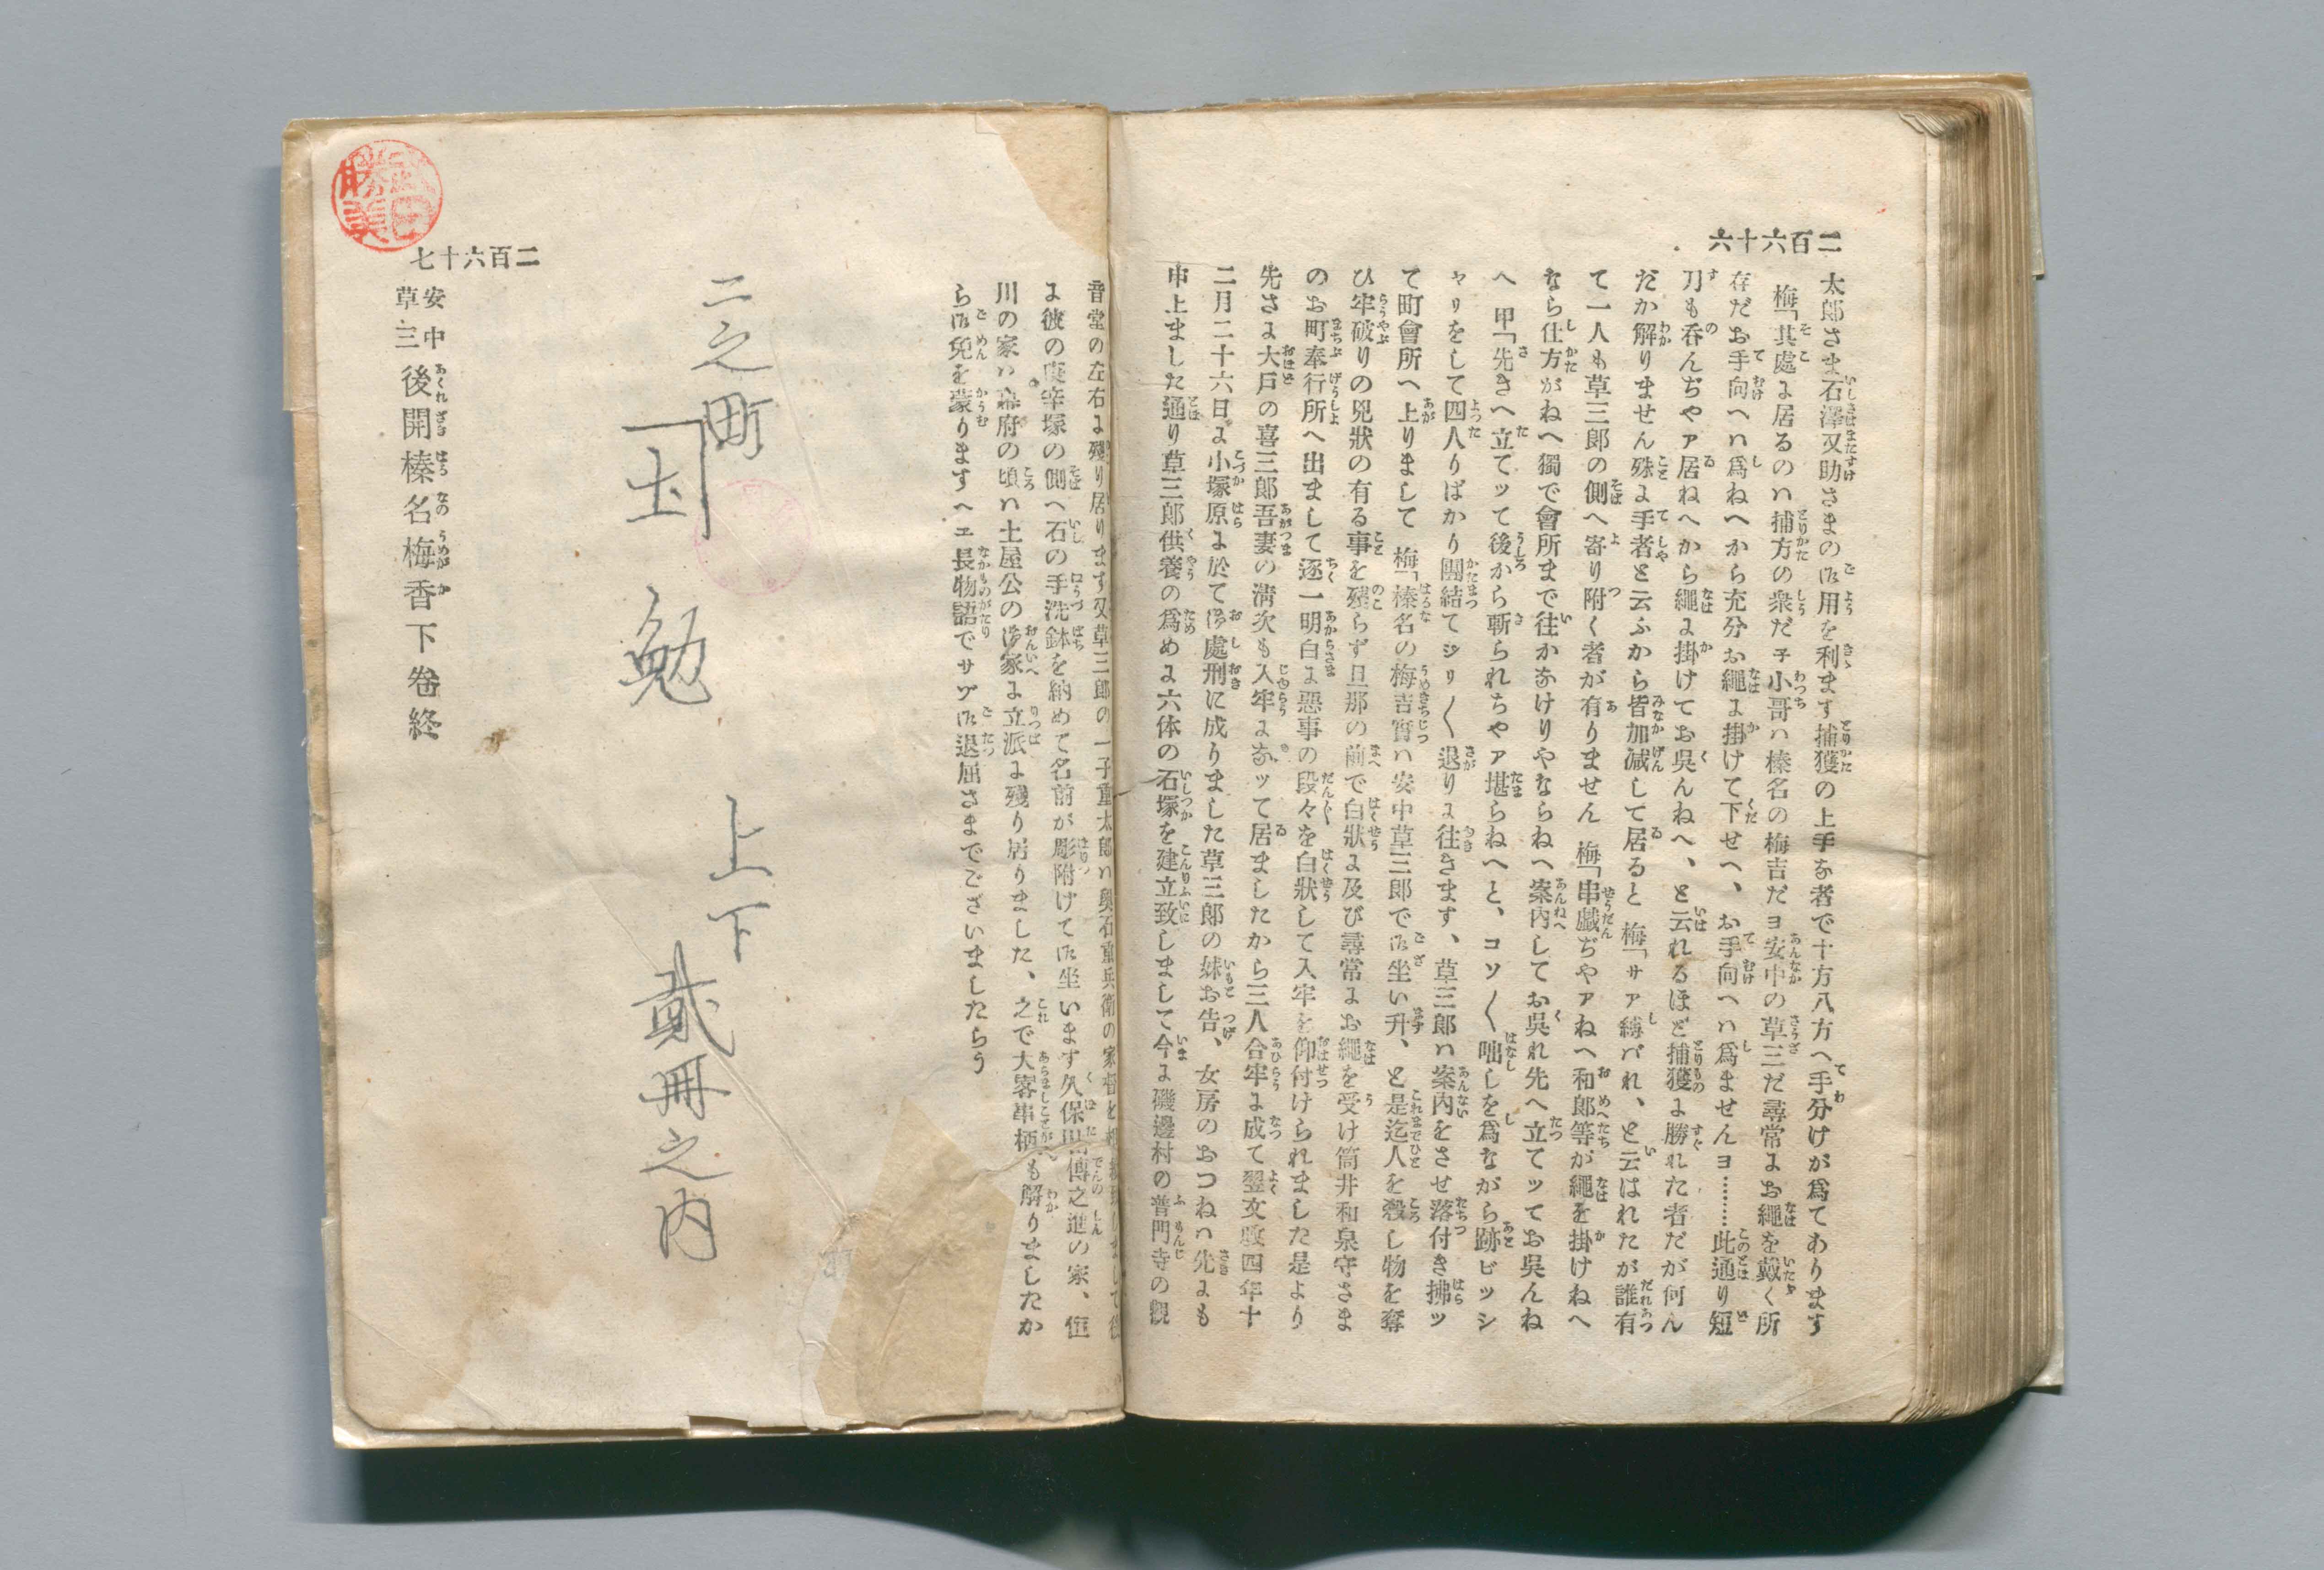 二百六十六
太郎さま石澤又助さまの御用を利ます捕獲の上手な者で十方八方へ手分けが爲てあります
梅「其處よ居るのハ捕方の衆だ子小哥ハ榛名の梅吉だヨ安中の草三だ尋常よお繩を戴く所
存だお手向へハ爲ねへから充分お繩よ掛けて下せへ、お手向へハ爲ませんヨ………此通り短
刀も呑んぢやア居ねへから繩よ掛けてお呉んねへ、と云れるほど捕獲よ勝れた者だが何ん
だか解りません殊よ手者と云ふから皆加减して居ると　梅「サァ縛パれ、と云はれたが誰有
て一人も草三郎の側へ寄り附く者が有りません　梅「串戯ぢやアねへ和郎等が繩を掛けねへ
なら仕方がねへ獨で會所まで往かなけりやならねへ案内してお呉れ先へ立てッてお呉んね
へ　甲「先きへ立てッて後から斬られちやア堪らねへと、コソ〱咄しを爲ながら跡ビッシ
ャリをして四人りばかり團結てジリ〱退りよ往きます、草三郎ハ案内をさせ落付き拂ッ
て町會所へ上りまして　梅「榛名の梅吉實ハ安中草三郎で御坐い升、と是迄人を殺し物を奪
ひ牢破りの兇狀の有る事を殘らず旦那の前で白狀よ及び尋常よお繩を受け筒井和泉守さま
のお町奉行所へ出まして逐一明白よ惡事の段々を白狀して入牢を仰付けられました是より
先さよ大戸の喜三郎吾妻の淸次も入牢よなッて居ましたから三人合牢よ成て翌文政四年十
二月二十六日よ小塚原よ於て御處刑に成りました草三郎の妹お告、女房のおつねハ先よも
申上ました通り草三郎供養の爲めよ六体の石塚を建立致しまして今よ磯邊村の普門寺の觀
音堂の左右よ殘り居ります又草三郎の一子重太郎ハ奧石重兵衛の家督を
よ彼の庚辛塚の側へ石の手洗鉢を納めて名前が彫附けて御坐います久保田傳之進の家、恒
川の家ハ幕府の頃ハ土屋公の御家よ立派よ殘り居りました、之で大畧串柄も解りましたか
ら御免を蒙りますヘエ長物語でサゾ御退屈さまでございましたらう
二之町
勉
上下
貳冊之内
安中草三　後開榛名梅香下卷終
二百六十七
武田勝美